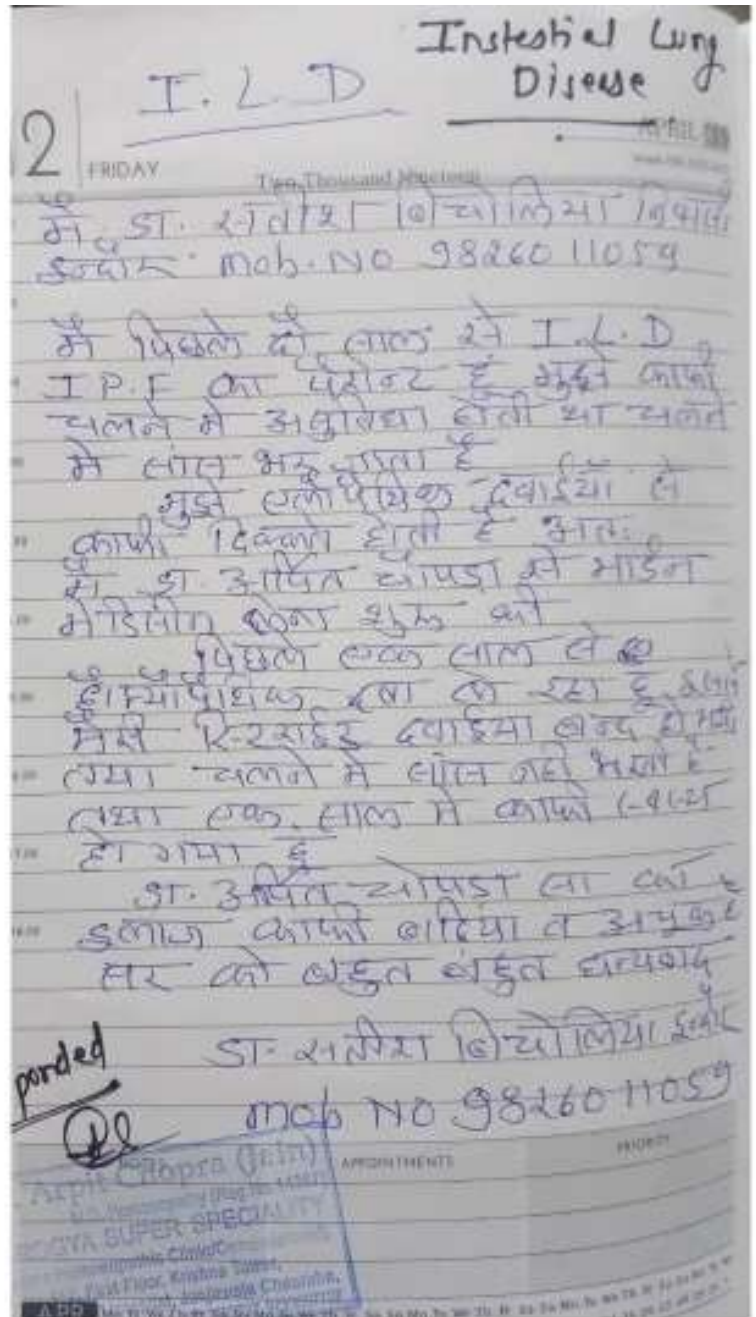 Instestial Lung
Disease
I. L. D
2
APRIL
FRIDAY
Two Thousand Nineteen
मैं, डा. सतीश बियोलिया निवासी
इन्दौर mob. NO 98260 11059
मैं पिछले दो साल से I.L.D,
I P.F का पेशेन्ट हूं मुझे काफी
चलने में असुविधा होती थी चलने
में सांस भर जाता है
मुझे एलोपैथिक दवाईयों से
काफी दिक्कत होती है अतः
मैं डा. अर्पित चोपडा से
मेडिसीन लेना शुरू की
पिछले एक साल से
होम्योपैथिक दवा ले रहा हूं
मेरी दवाईया बन्द हो गई
तथा चलने में सांस नहीं भरती है
तथा एक साल में काफी
हो गया हूं
डा. अर्पित चोपडा सा का
इलाज काफी बढिया व
सर को बहुत बहुत धन्यवाद
डा. सतीश बियोलिया इन्दौर
mob NO 98260 11059
ponded
APPOINTMENTS
PRIORITY
Arpit Chopra (Jain)
SUPER SPECIALITY
First Floor, Krishna Tower,